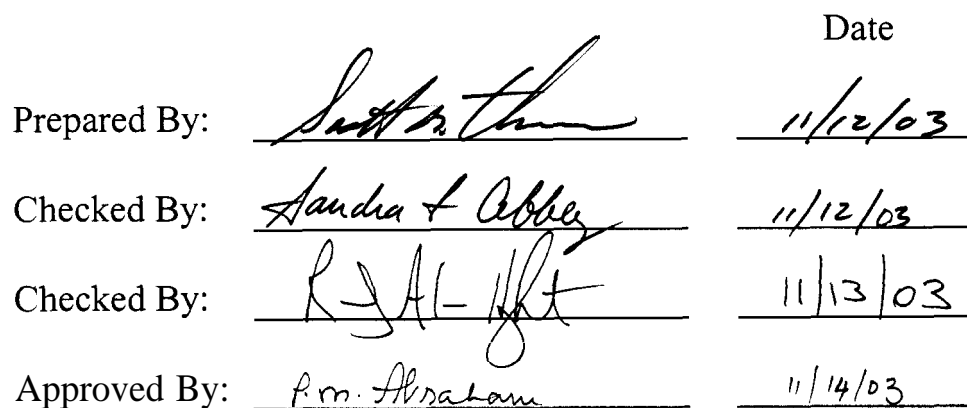 Date
Prepared By: 11/12/03
Checked By: Sandra L Abbey 11/12/03
Checked By: 11/13/03
Approved By: P.M. Abraham 11/14/03